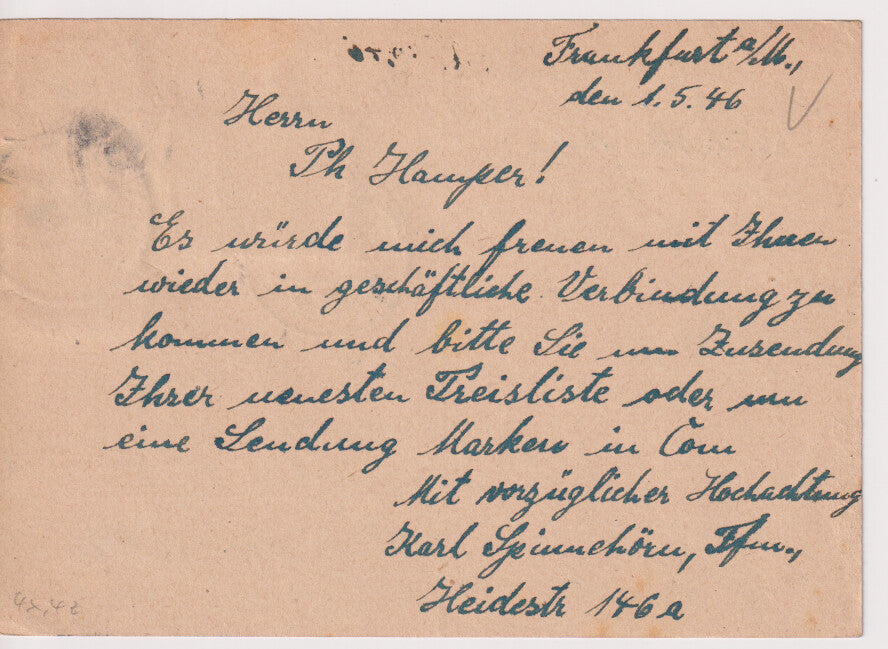 Frankfurt a/M.,
den 1.5.46
Herrn
Ph Hamper!
Es würde mich freuen mit Ihnen
wieder in geschäftliche Verbindung zu
kommen und bitte Sie um Zusendung
Ihrer neuesten Preisliste oder um
eine Sendung Marken in Com
Mit vorzüglicher Hochachtung
Karl Spinnehörn, Ffm.,
Heidestr 146a